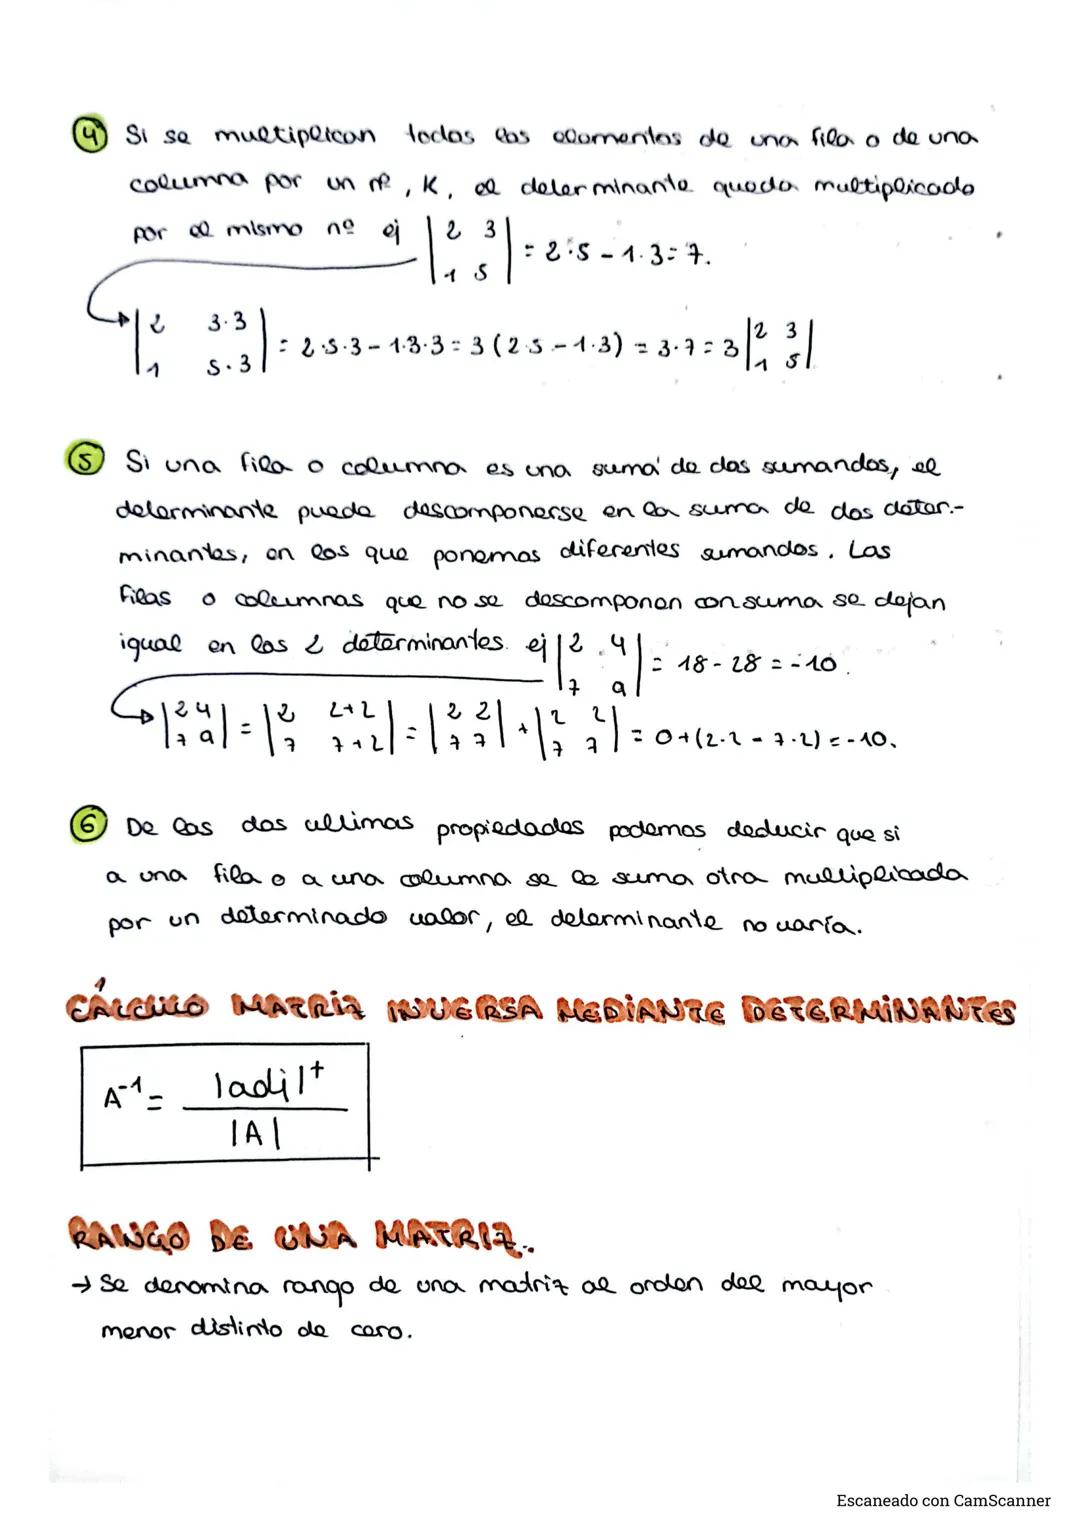 4 Si se multiplican todos los elementos de una fila o de una
columna por un nº, K, el determinante queda multiplicado
por el mismo nº ej |2 3; 1 5| = 2·5 - 1·3 = 7.
|2 3·3; 1 5·3| = 2·5·3 - 1·3·3 = 3(2·5 - 1·3) = 3·7 = 3|2 3; 1 5|
5 Si una fila o columna es una suma de dos sumandos, el
determinante puede descomponerse en la suma de dos deter-
minantes, en los que ponemos diferentes sumandos. Las
filas o columnas que no se descomponen con suma se dejan
igual en los 2 determinantes. ej |2 4; 7 9| = 18 - 28 = -10.
|2 4; 7 9| = |2 2+2; 7 7+2| = |2 2; 7 7| + |2 2; 7 7| = 0+(2·2 - 7·2) = -10.
6 De las dos ultimas propiedades podemos deducir que si
a una fila o a una columna se le suma otra multiplicada
por un determinado valor, el determinante no varía.
CÁLCULO MATRIZ INVERSA MEDIANTE DETERMINANTES
A⁻¹ = |adj|ᵗ / |A|
RANGO DE UNA MATRIZ.
→ Se denomina rango de una matriz al orden del mayor
menor distinto de cero.
Escaneado con CamScanner